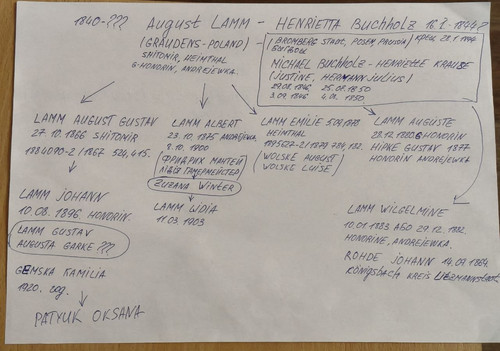 1840-??? August LAMM - HENRIETTA Buchholz
(GRAUDENS-POLAND)
SHITOMIR, HEIMTHAL
G-HONORIN, ANDREJEWKA.
(BROMBERG STADT, POSEN,
MICHAEL BUCHHOLZ - HENRIETTE KRAUSE
(JUSTINE, HERMANN JULIUS)
29.08.1846 25.08.1850
3.09.1846 4.01.1850
LAMM AUGUST GUSTAV
27.10.1866 SHITONIR
1884090-2/1867 524,415.
LAMM ALBERT
23.10.1875 ANDREJEWKA,
9.10.1900
(ФРИДРИХ МАНТЕЙ
ZUZANA WINTER
LAMM LIDIA
11.03.1903
LAMM EMILIE
HEIMTHAL
1195627-2/1879 789, 132.
WOLSKE AUGUST
WOLSKE LUISE
LAMM AUGUSTE
HONORIN
HIPKE GUSTAV 1877
HONORIN ANDREJEWKA.
LAMM JOHANN
10.08.1896 HONORIN.
LAMM GUSTAV
AUGUSTA GARKE ???
GEMSKA KAMILIA
1920.
PATYUK OKSANA
LAMM WILGELMINE
10.01.1883 АБО 29.12.1882.
HONORINE, ANDREJEWKA.
ROHDE JOHANN 14.09.1864
KÖNIGSBACH KREIS LITZMANNSTADT